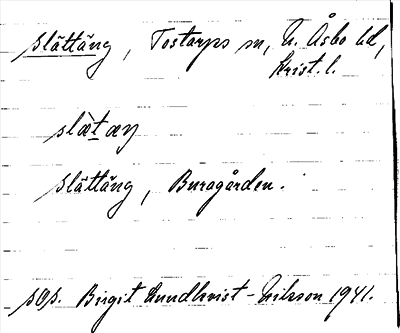 slättäng, Tostarps sn, N. Åsbo hd,
Krist. l.
slæ̀tæŋ
slättäng, Buragården.
sOs. Birgit Lundkvist-Nilsson 1941.